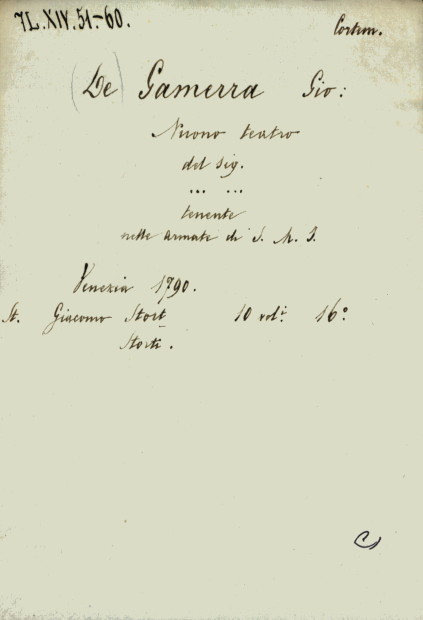 7L.XIV.51-60.
Cortin.
(De) Gamerra Gio:
Nuovo teatro
del sig.
... ...
tenente
nelle armate di S. M. I.
Venezia 1790.
St. Giacomo Stort 10 vol.i 16°
Storti.